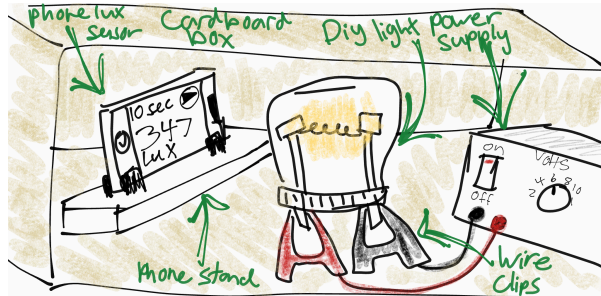 phone lux
sensor
Cardboard
box
Diy light
power
supply
10 sec
347
lux
on
off
Volts
2 4 6 8 10
Phone stand
Wire
Clips